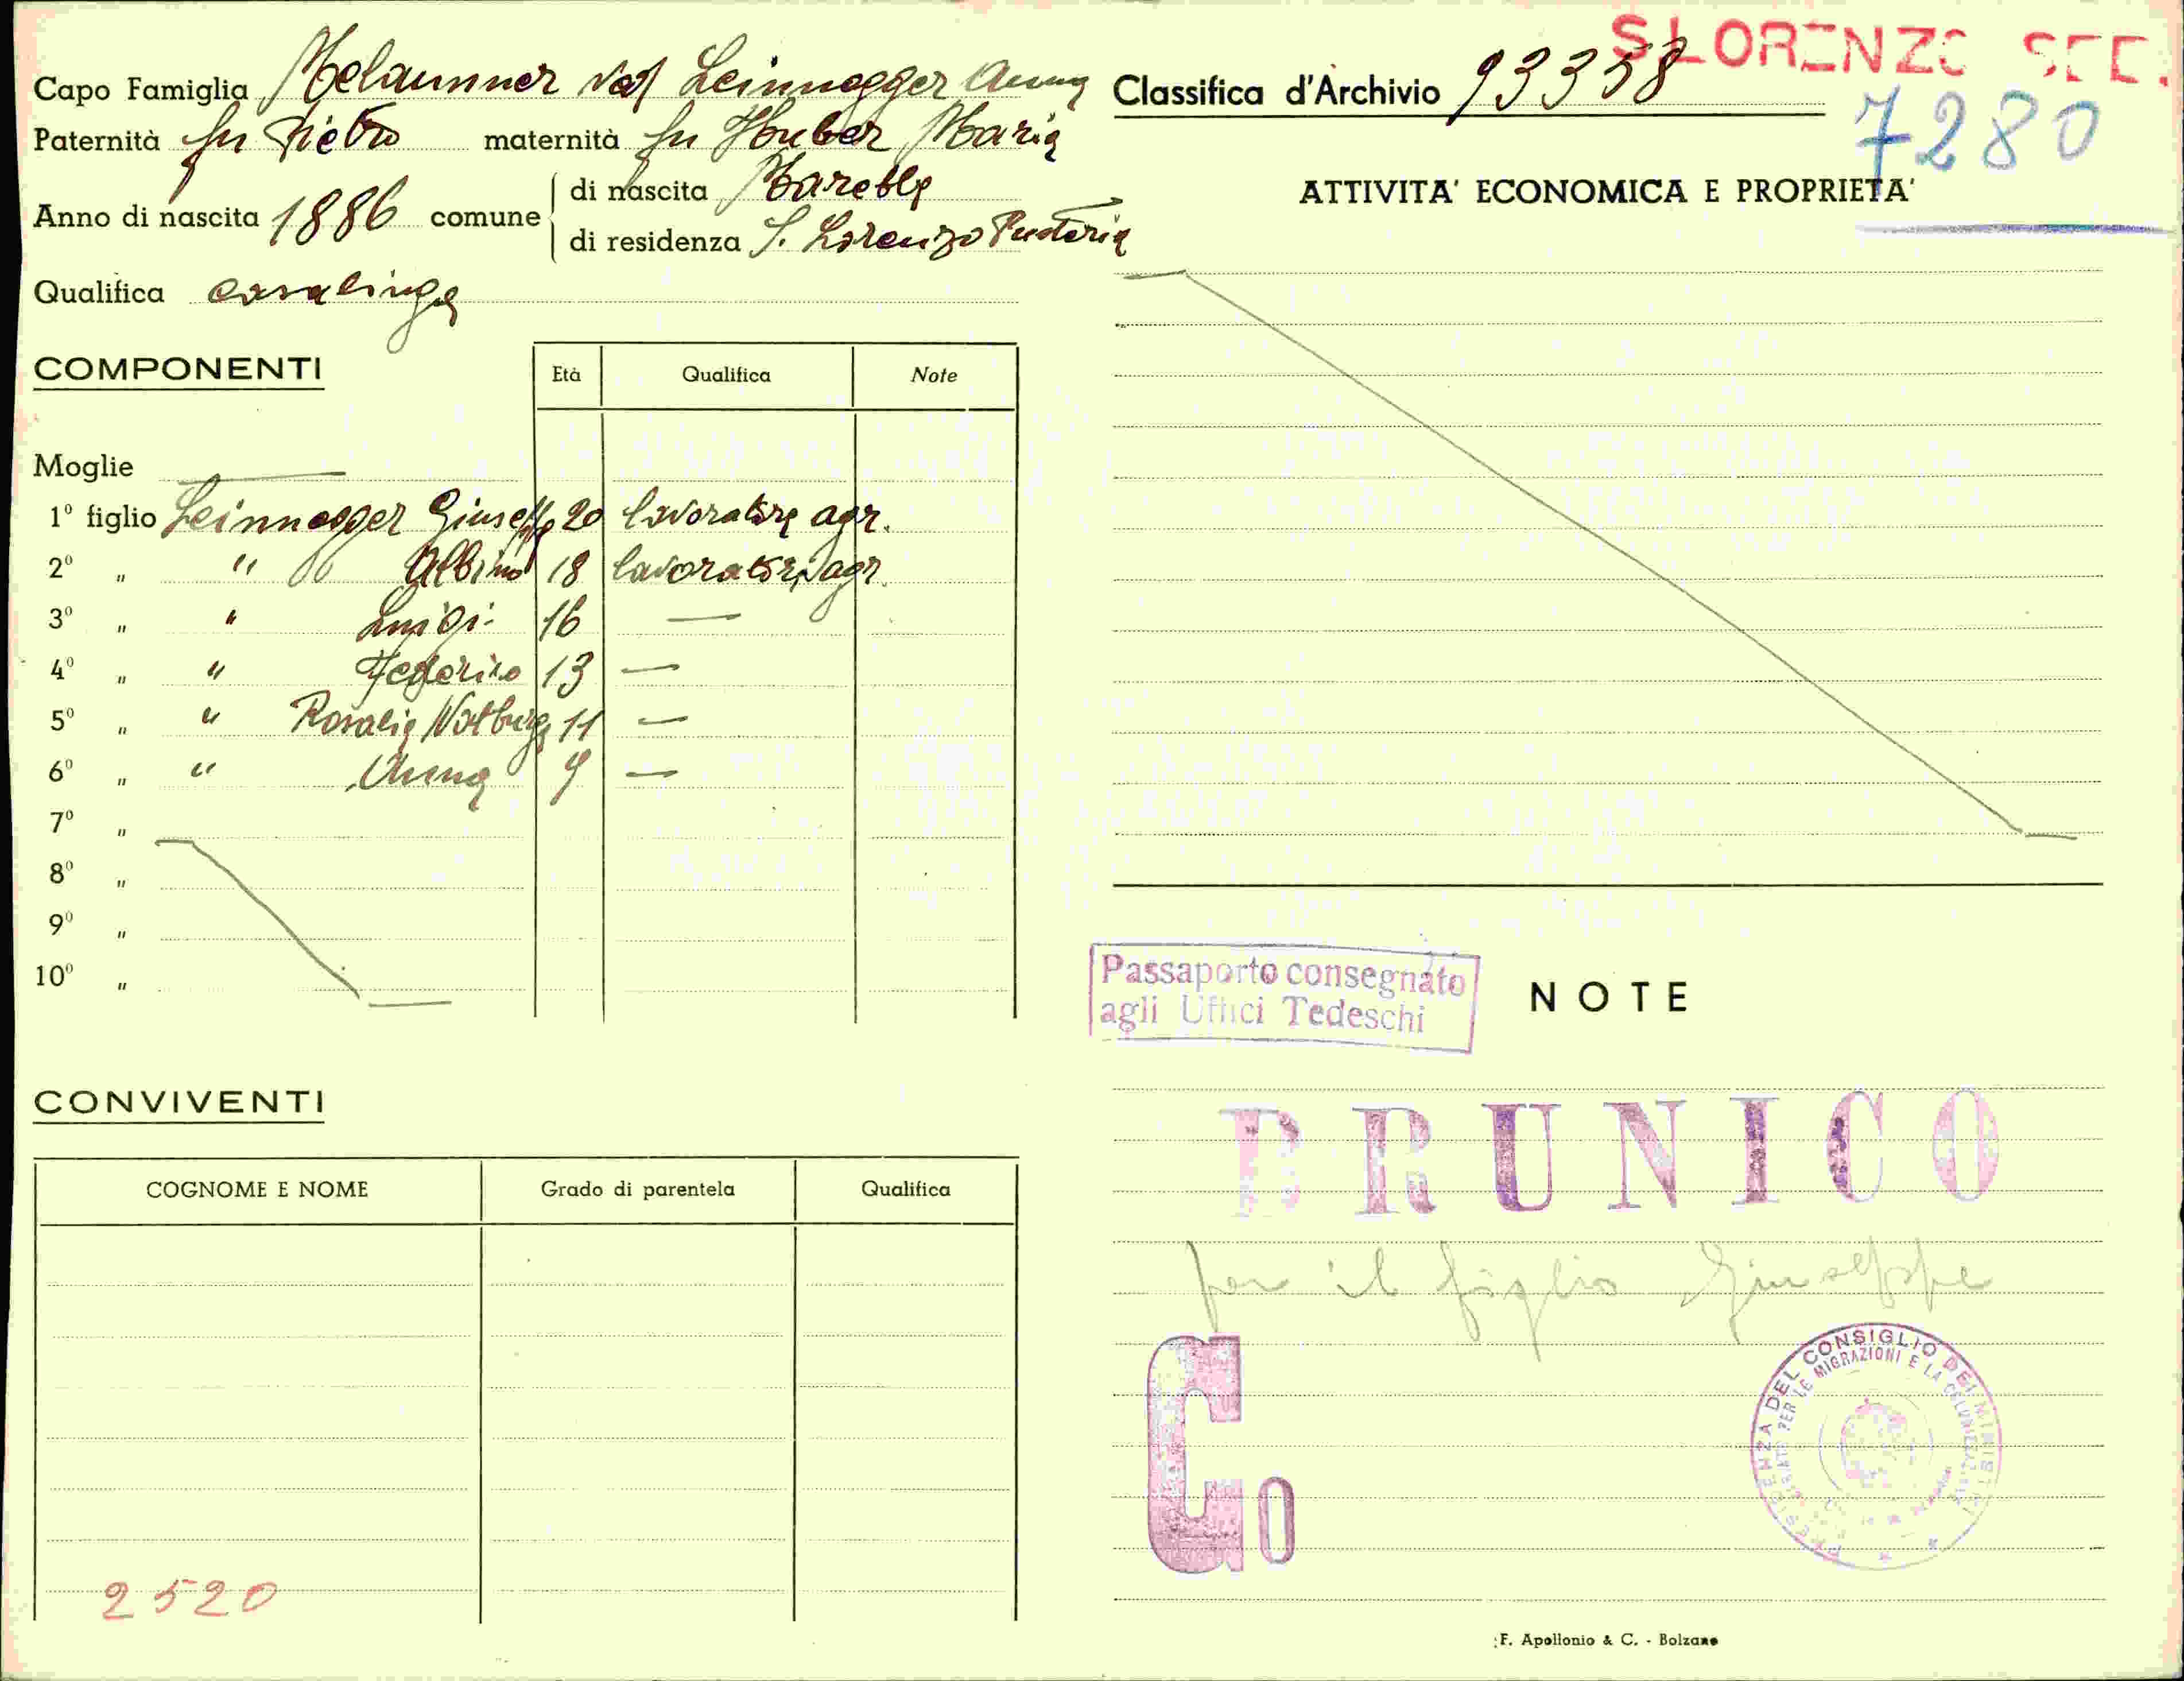 S. LORENZO SEB.
Capo Famiglia Melaunner Ved. Leinnegger Anna
Classifica d'Archivio 93358
7280
Paternità fu Pietro maternità fu Huber Maria
Anno di nascita 1886 comune di nascita Marebbe
di residenza S. Lorenzo Pusteria
Qualifica casalinga
COMPONENTI
Età Qualifica Note
Moglie
1º figlio Leinnegger Giuseppe 20 lavoratore agr.
2º „ " Albino 18 lavoratore agr.
3º „ " Luigi 16 —
4º „ " Federico 13 —
5º „ " Rosalia Notburga 11 —
6º „ " Anna 9 —
7º „
8º „
9º „
10º „
CONVIVENTI
COGNOME E NOME Grado di parentela Qualifica
2520
ATTIVITA' ECONOMICA E PROPRIETA'
Passaporto consegnato
agli Uffici Tedeschi
NOTE
BRUNICO
per il figlio Giuseppe
Go
PRESIDENZA DEL CONSIGLIO DEI MINISTRI
PER LE MIGRAZIONI E LA
F. Apollonio & C. - Bolzano